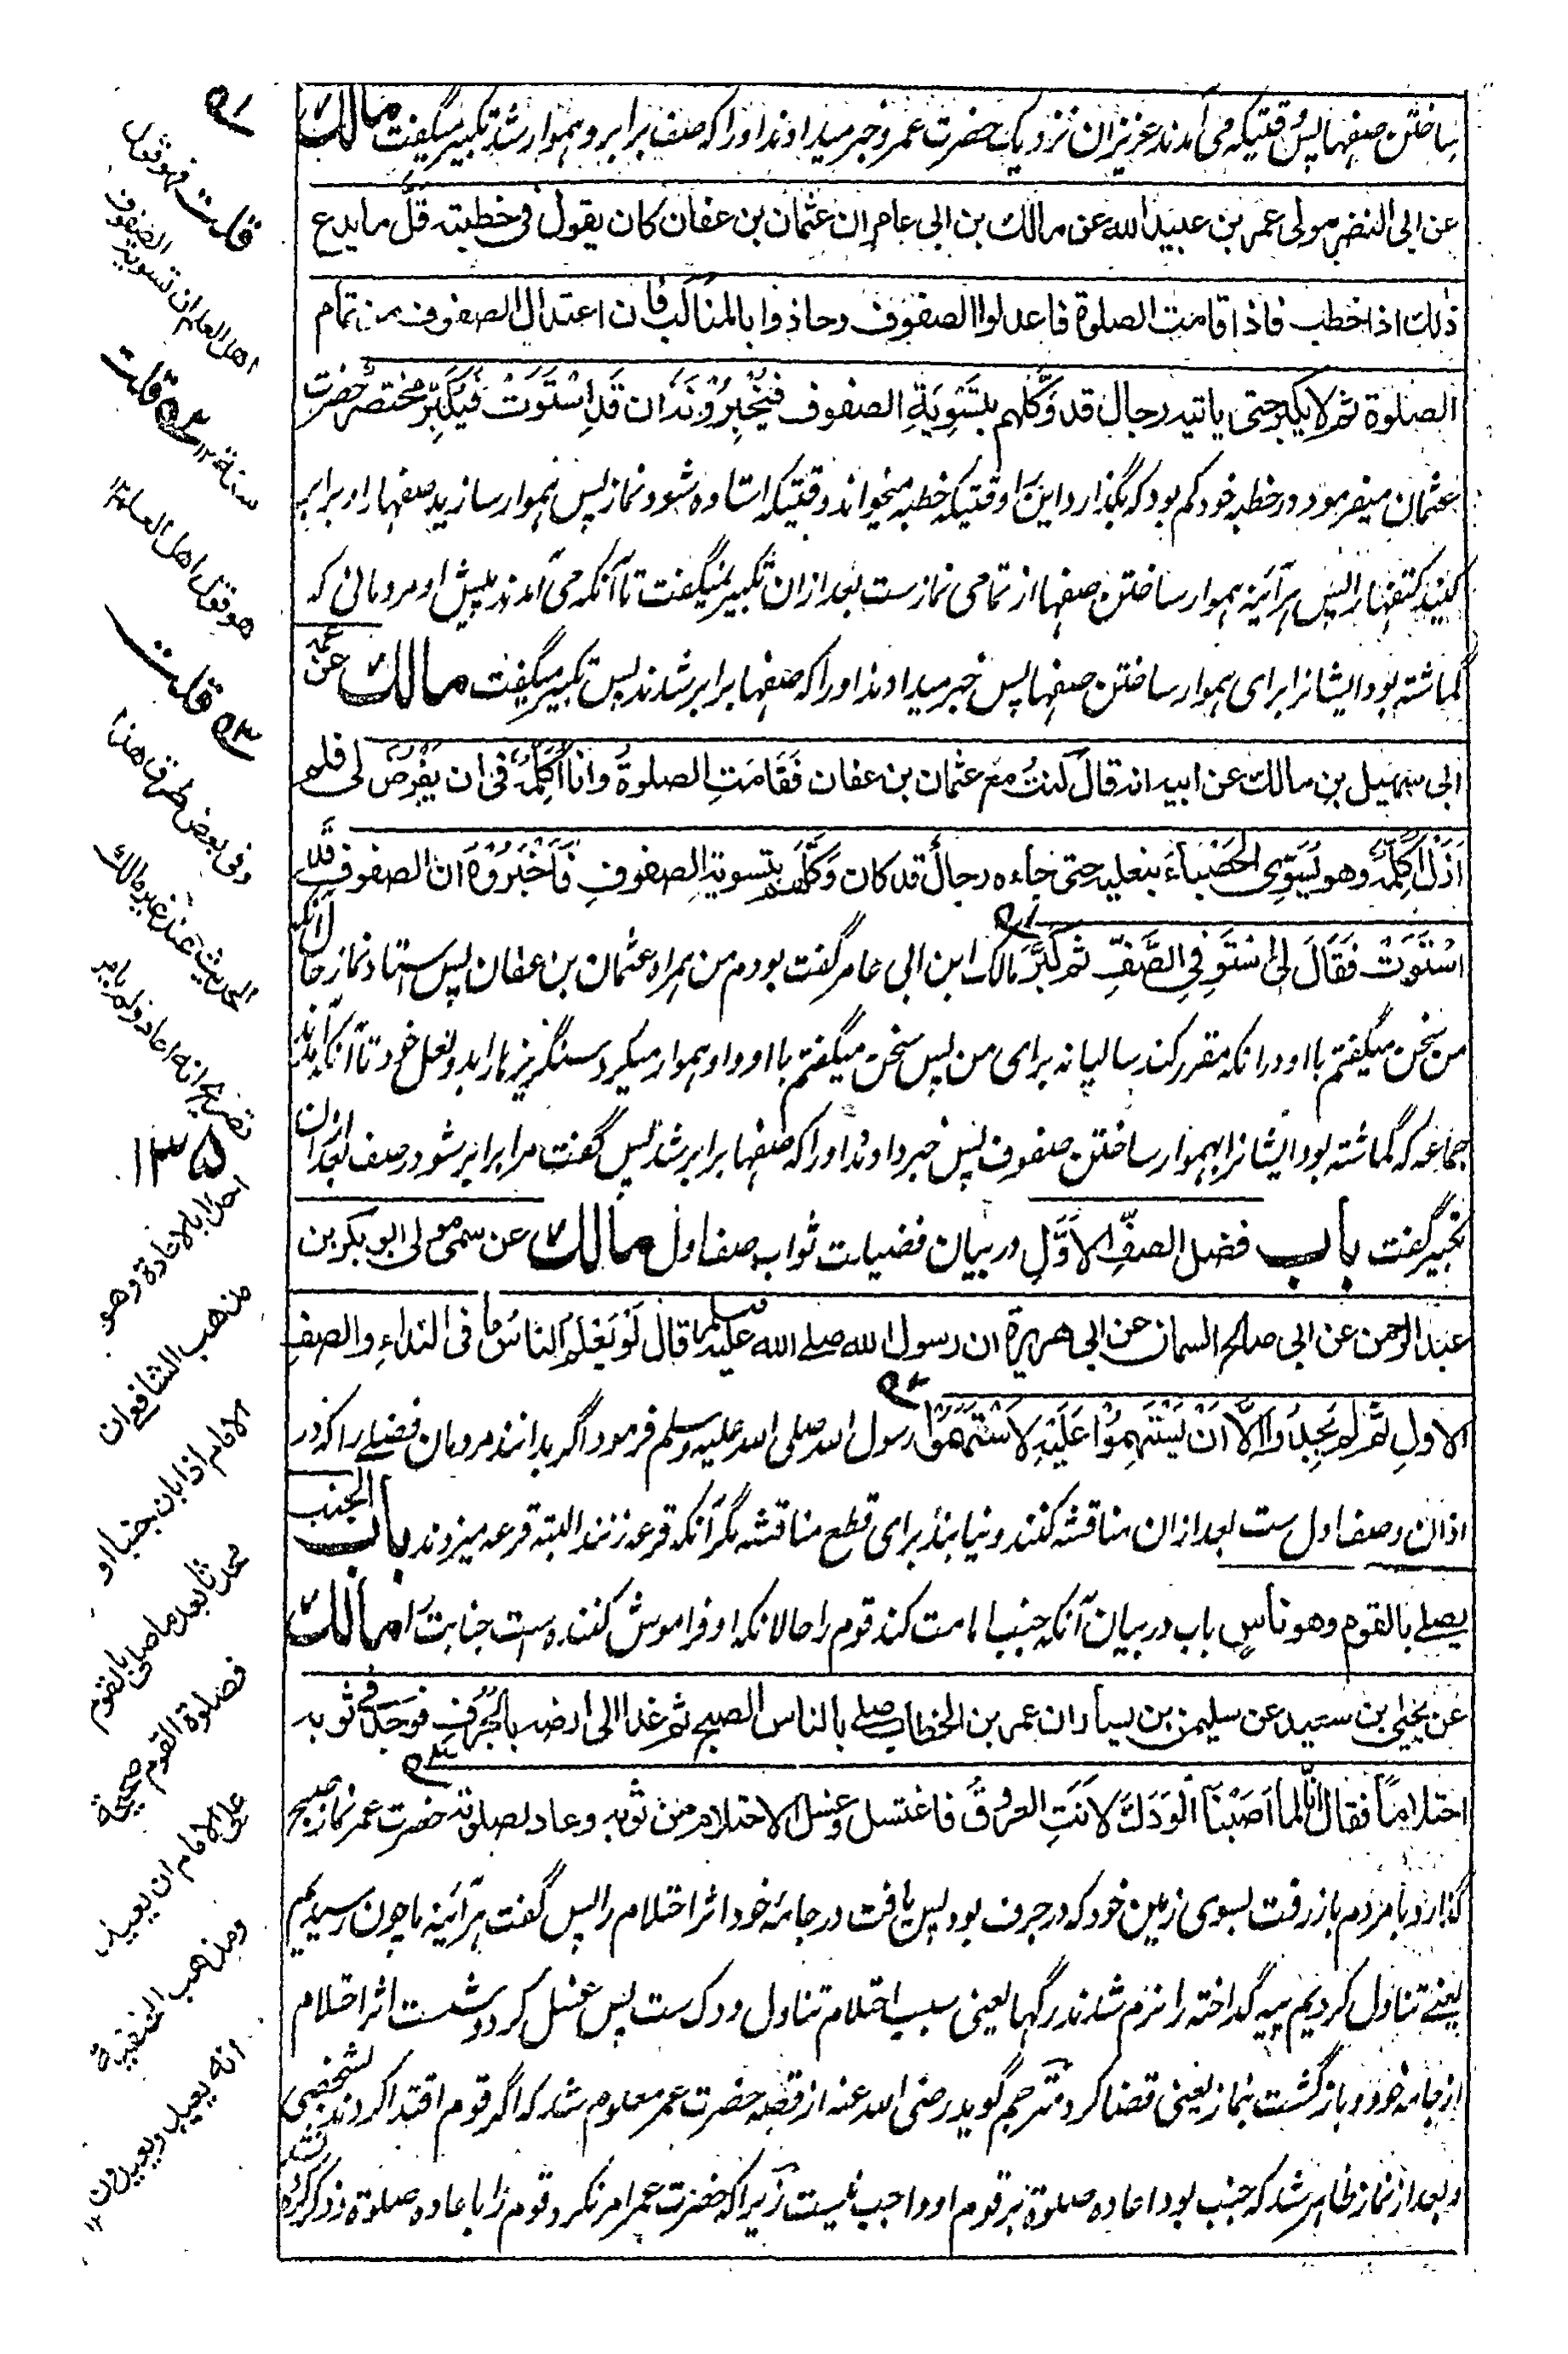 ساختن صفها پس وقتیکه می آمدند عزیزان نزدیک حضرت عمر و خبر میدادند او را که صف برابر و هموار شد تکبیر میگفت مالك
عن ابی النضر مولی عمر بن عبید الله عن مالك بن ابی عامر ان عثمان بن عفان كان يقول فی خطبته قلّ ما يدع
ذلك اذا خطب فاذا قامت الصلوة فاعدلوا الصفوف وحاذوا بالمناكب فان اعتدال الصفوف من تمام
الصلوة ثم لا يكبر حتی ياتيه رجال قد وَكَّلهم بتَسْوِيَةِ الصفوف فيُخْبِرُوْنَه اَن قَدِ اسْتَوَتْ فيُكَبِّر حضرت
عثمان میفرمود در خطبه خود کم بود که بگذارد این را وقتیکه خطبه میخواند وقتیکه استاده شود نماز پس هموار سازید صفها را و برابر
کنید کتفها را پس هر آئینه هموار ساختن صفها از تمامی نماز ست بعد ازان تکبیر نمیگفت تا آنکه می آمدند پیش او مردمانی که
گماشته بود ایشانرا برای هموار ساختن صفها پس خبر میدادند او را که صفها برابر شدند پس تکبیر میگفت مالك عن عمه
ابی سهیل بن مالك عن ابيه انه قال كنتُ مع عثمان بن عفان فَقَامَتِ الصلوةُ وانا اُكَلِّمُه فی ان يَفْرِضَ لی فلم
اَزَلْ اُكَلِّمُهٗ وهو يُسَوِّی الحَصْباءَ بنعليه حتی جاءه رجالٌ قد كان وَكَّلَهم بتسوية الصفوفِ فَاَخْبَرُوْهُ ان الصفوف قد
اسْتَوَتْ فَقَالَ لی اسْتَوِ فِی الصَّفِّ ثم كبَّرَ مالک ابن ابی عامر گفت بودم من همراه عثمان بن عفان پس استاد نماز حال آنکه
من سخن میگفتم با او در آنکه مقرر کند سالیانه برای من پس سخن میگفتم با او و او هموار میکرد سنگریزها را بدو نعل خود تا آنکه آمدند
جماعه که گماشته بود ایشانرا بهموار ساختن صفوف پس خبر دادند او را که صفها برابر شد پس گفت مرا برابر شو در صف بعد ازان
تکبیر گفت باب فضل الصفِّ الاوَّلِ در بیان فضیلت ثواب صف اول مالك عن سمی مولی ابو بکر بن
عبد الرحمن عن ابی صالح السمان عن ابی هريرة ان رسول الله صلے الله عليه وسلم قال لَوْ يَعْلَمُ الناسُ ما فی النداءِ والصفِ
الاولِ ثُمَّ لم يَجِدُوا اِلَّا اَنْ يَسْتَهِمُوْا عَلَيْهِ لاسْتَهَمُوْا رسول الله صلی الله علیه وسلم فرمود اگر بدانند مردمان فضلے را که در
اذان و صف اول ست بعد ازان مناقشه کنند و نیابند برای قطع مناقشه مگر آنکه قرعه زنند البته قرعه میزدند باب الجنب
يصلے بالقوم وهو ناسٍ باب در بیان آنکه جنب امامت کند قوم را حالانکه او فراموش کننده است جنابت را مالك
عن يحيی بن سعيد عن سليمن بن يسار ان عمر بن الخطاب صلے بالناس الصبح ثم غدا الی ارضه بالجُرُف فوجَدَ فے ثوبه
احتلاماً فقال اِنّا لما اَصَبْنَا الْوَدَكَ لانَتِ العروقُ فاغتسل وغسل الاحتلام من ثوبه وعاد لصلوته حضرت عمر نماز صبح
گذارد با مردم باز رفت بسوی زمین خود که در جرف بود پس یافت در جامۀ خود اثر احتلام را پس گفت هر آئینه ما چون رسیدیم
یعنے تناول کردیم پیه گداخته را نرم شدند رگها یعنی سبب احتلام تناول ودک ست پس غسل کرد و شست اثر احتلام
از جامۀ خود و باز گشت بنماز یعنی قضا کرد مترجم گوید رضی الله عنه از قصه حضرت عمر معلوم شد که اگر قوم اقتدا کردند بشخصی
و بعد از نماز ظاهر شد که جنب بود اعاده صلوة بر قوم او واجب نیست زیرا که حضرت عمر امر نکرد قوم را باعاده صلوة و ذکر کرده
ف۱
قلت فهو قول
اهل العلم ان تسوية الصفوف
سنة ۱۲ ف۲ قلت
هو قول اهل العلم
ف۳ قلت
وفی بعض طرق هذا
الحديث عند غير مالك
تصريح انه اعاد ولم يامر
۱۳۵
احدا بالاعادة وهو
مذهب الشافعے ان
الامام اذا بان جنبا او
محدثا بعد ما صلی بالقوم
فصلوة القوم صحيحة
علی الامام ان يعيد
ومذهب الحنفية
انه يعيد ويعيدون
۱۲